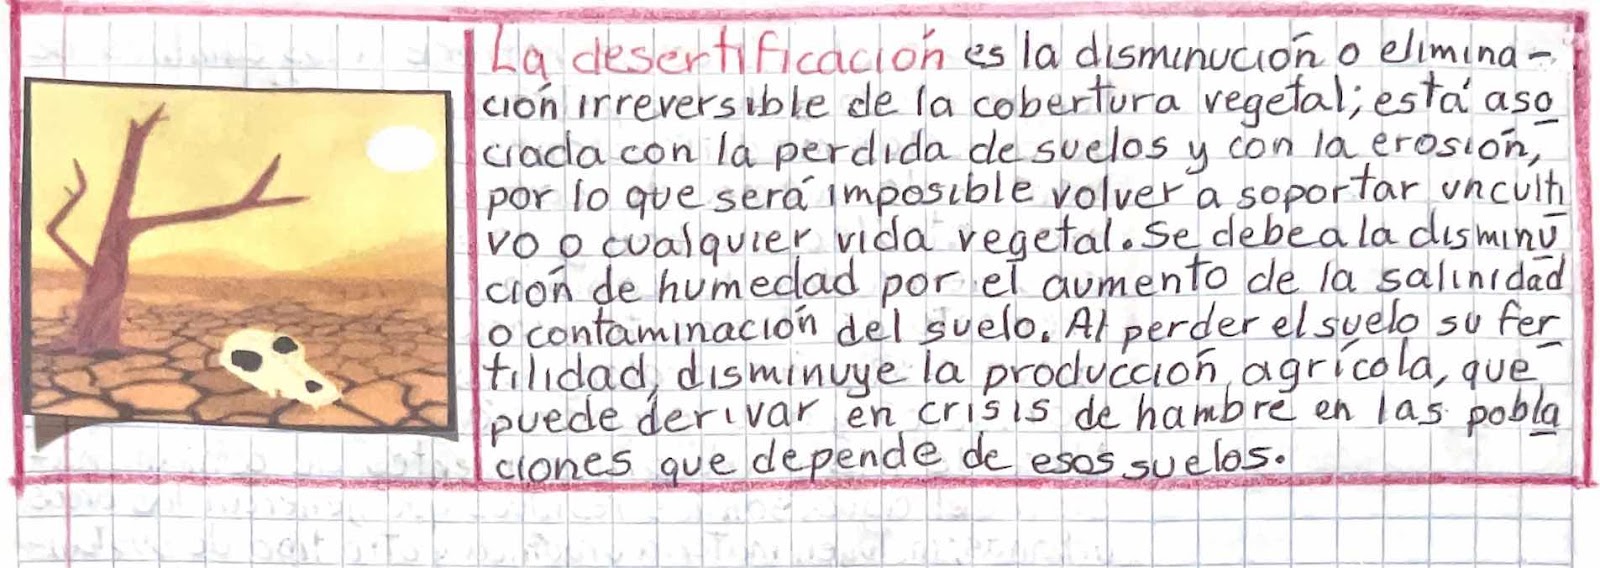 La desertificación es la disminución o elimina-
ción irreversible de la cobertura vegetal; está aso
ciada con la perdida de suelos y con la erosión,
por lo que será imposible volver a soportar un culti
vo o cualquier vida vegetal. Se debe a la disminu
ción de humedad por el aumento de la salinidad
o contaminación del suelo. Al perder el suelo su fer
tilidad, disminuye la producción agrícola, que
puede derivar en crisis de hambre en las pobla
ciones que depende de esos suelos.